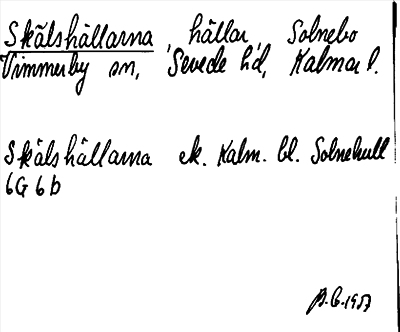 Skälshällarna, hällar, Solnebo
Vimmerby sn, Sevede hd, Kalmar l.
Skälshällarna ek. Kalm. bl. Solnehult
6G 6b
B.G. 1957